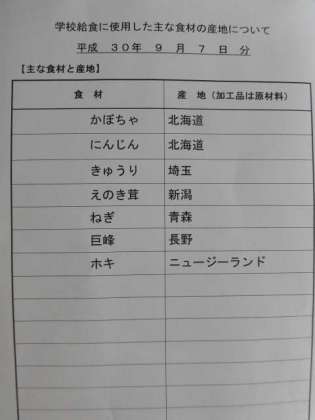 学校給食に使用した主な食材の産地について
平成 30年 9 月 7 日 分
【主な食材と産地】
食 材 産 地（加工品は原材料）
かぼちゃ 北海道
にんじん 北海道
きゅうり 埼玉
えのき茸 新潟
ねぎ 青森
巨峰 長野
ホキ ニュージーランド